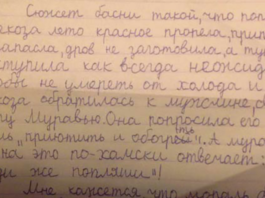 Сюжет басни такой, что поп
екоза лето красное пропела, прип
апасла, дров не заготовила, а ту
тупила как всегда неожид
не умереть от холода и
коза обратилась к мужчине, 
цу Муравью. Она попросила его
ль "приютить и обогреть". А мура
на это по-хамски отвечает:
и же попляши"!
Мне кажется, что мораль